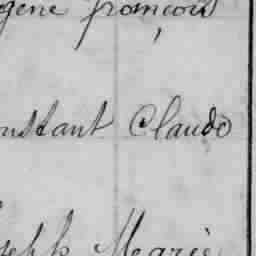 gène françois
onstant Claude
seph Marie